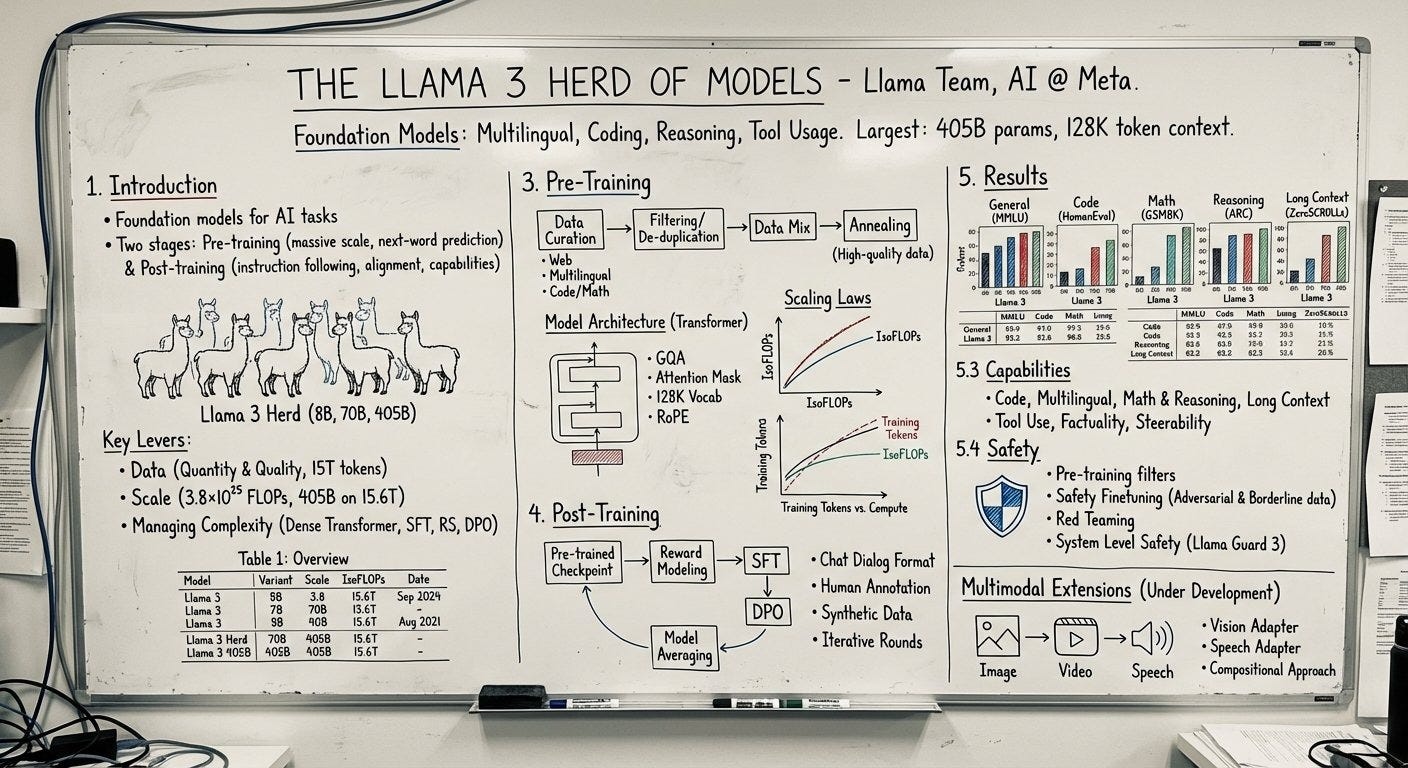 THE LLAMA 3 HERD OF MODELS – Llama Team, AI @ Meta.
Foundation Models: Multilingual, Coding, Reasoning, Tool Usage. Largest: 405B params, 128K token context.
1. Introduction
• Foundation models for AI tasks
• Two stages: Pre-training (massive scale, next-word prediction)
& Post-training (instruction following, alignment, capabilities)
Llama 3 Herd (8B, 70B, 405B)
Key Levers:
• Data (Quantity & Quality, 15T tokens)
• Scale (3.8×10²⁵ FLOPs, 405B on 15.6T)
• Managing Complexity (Dense Transformer, SFT, RS, DPO)
Table 1: Overview
Model Variant Scale IsoFLOPs Date
Llama 3 9B 3.8 15.6T Sep 2024
Llama 3 7B 70B 13.6T –
Llama 3 9B 40B 15.6T Aug 2021
Llama 3 Herd 70B 405B 15.6T –
Llama 3 405B 405B 405B 15.6T –
3. Pre-Training
Data Curation
Filtering/ De-duplication
Data Mix
Annealing
• Web
• Multilingual
• Code/Math
(High-quality data)
Model Architecture (Transformer)
• GQA
• Attention Mask
• 128K Vocab
• RoPE
Scaling Laws
IsoFLOPs
IsoFLOPs
IsoFLOPs
Training
Training Tokens
IsoFLOPs
Training Tokens vs. Compute
4. Post-Training
Pre-trained Checkpoint
Reward Modeling
SFT
DPO
Model Averaging
• Chat Dialog Format
• Human Annotation
• Synthetic Data
• Iterative Rounds
5. Results
General (MMLU)
Code (HumanEval)
Math (GSM8K)
Reasoning (ARC)
Long Context
Llama 3
Llama 3
Llama 3
Llama 3
Llama 3
MMLU Code Math
General
Llama 3
MMLU Code Math
Code
Long Context
5.3 Capabilities
• Code, Multilingual, Math & Reasoning, Long Context
• Tool Use, Factuality, Steerability
5.4 Safety
• Pre-training filters
• Safety Finetuning (Adversarial & Borderline data)
• Red Teaming
• System Level Safety (Llama Guard 3)
Multimodal Extensions (Under Development)
Image
Video
Speech
• Vision Adapter
• Speech Adapter
• Compositional Approach